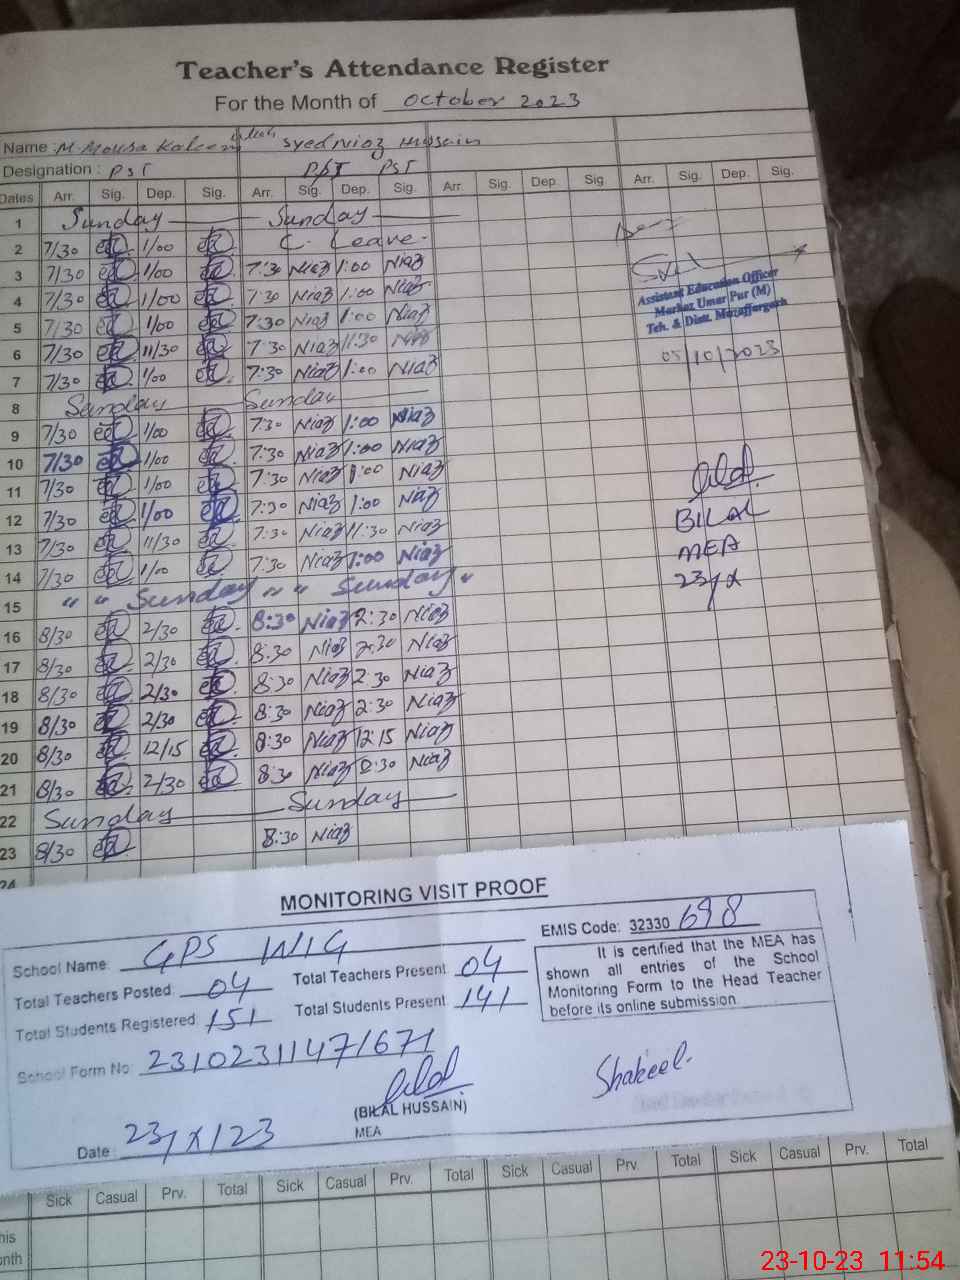 Teacher's Attendance Register
For the Month of October 2023
Name : M. Mousa Kaleem Syed Niaz Hussain
Designation : PST PST PST
Dates Arr. Sig. Dep. Sig. Arr. Sig. Dep. Sig. Arr. Sig. Dep. Sig. Arr. Sig. Dep. Sig.
1 Sunday Sunday
2 7/30 1/00 C. Leave.
3 7/30 1/00 7:30 Niaz 1:00 Niaz
4 7/30 1/00 7:30 Niaz 1:00 Niaz
5 7/30 1/00 7:30 Niaz 1:00 Niaz
6 7/30 11/30 7:30 Niaz 11:30 Niaz
7 7/30 1/00 7:30 Niaz 1:00 Niaz
8 Sunday Sunday
9 7/30 1/00 7:30 Niaz 1:00 Niaz
10 7/30 1/00 7:30 Niaz 1:00 Niaz
11 7/30 1/00 7:30 Niaz 1:00 Niaz
12 7/30 1/00 7:30 Niaz 1:00 Niaz
13 7/30 11/30 7:30 Niaz 11:30 Niaz
14 7/30 1/00 7:30 Niaz 1:00 Niaz
15 " " Sunday " " " Sunday "
16 8/30 2/30 8:30 Niaz 2:30 Niaz
17 8/30 2/30 8:30 Niaz 2:30 Niaz
18 8/30 2/30 8:30 Niaz 2:30 Niaz
19 8/30 2/30 8:30 Niaz 2:30 Niaz
20 8/30 12/15 8:30 Niaz 12:15 Niaz
21 8/30 2/30 8:30 Niaz 2:30 Niaz
22 Sunday Sunday
23 8/30 8:30 Niaz
24
Assistant Education Officer
Markaz Umar Pur (M)
Teh. & Distt. Muzaffargarh
05/10/2023
BILAL
MEA
23/X
MONITORING VISIT PROOF
School Name: GPS WIG
EMIS Code: 32330 698
Total Teachers Posted: 04 Total Teachers Present 04
Total Students Registered: 151 Total Students Present 141
School Form No: 23102311471671
It is certified that the MEA has
shown all entries of the School
Monitoring Form to the Head Teacher
before its online submission.
(BILAL HUSSAIN)
MEA
Shakeel.
Date: 23/X/23
Sick Casual Prv. Total Sick Casual Prv. Total Sick Casual Prv. Total Sick Casual Prv. Total
23-10-23 11:54